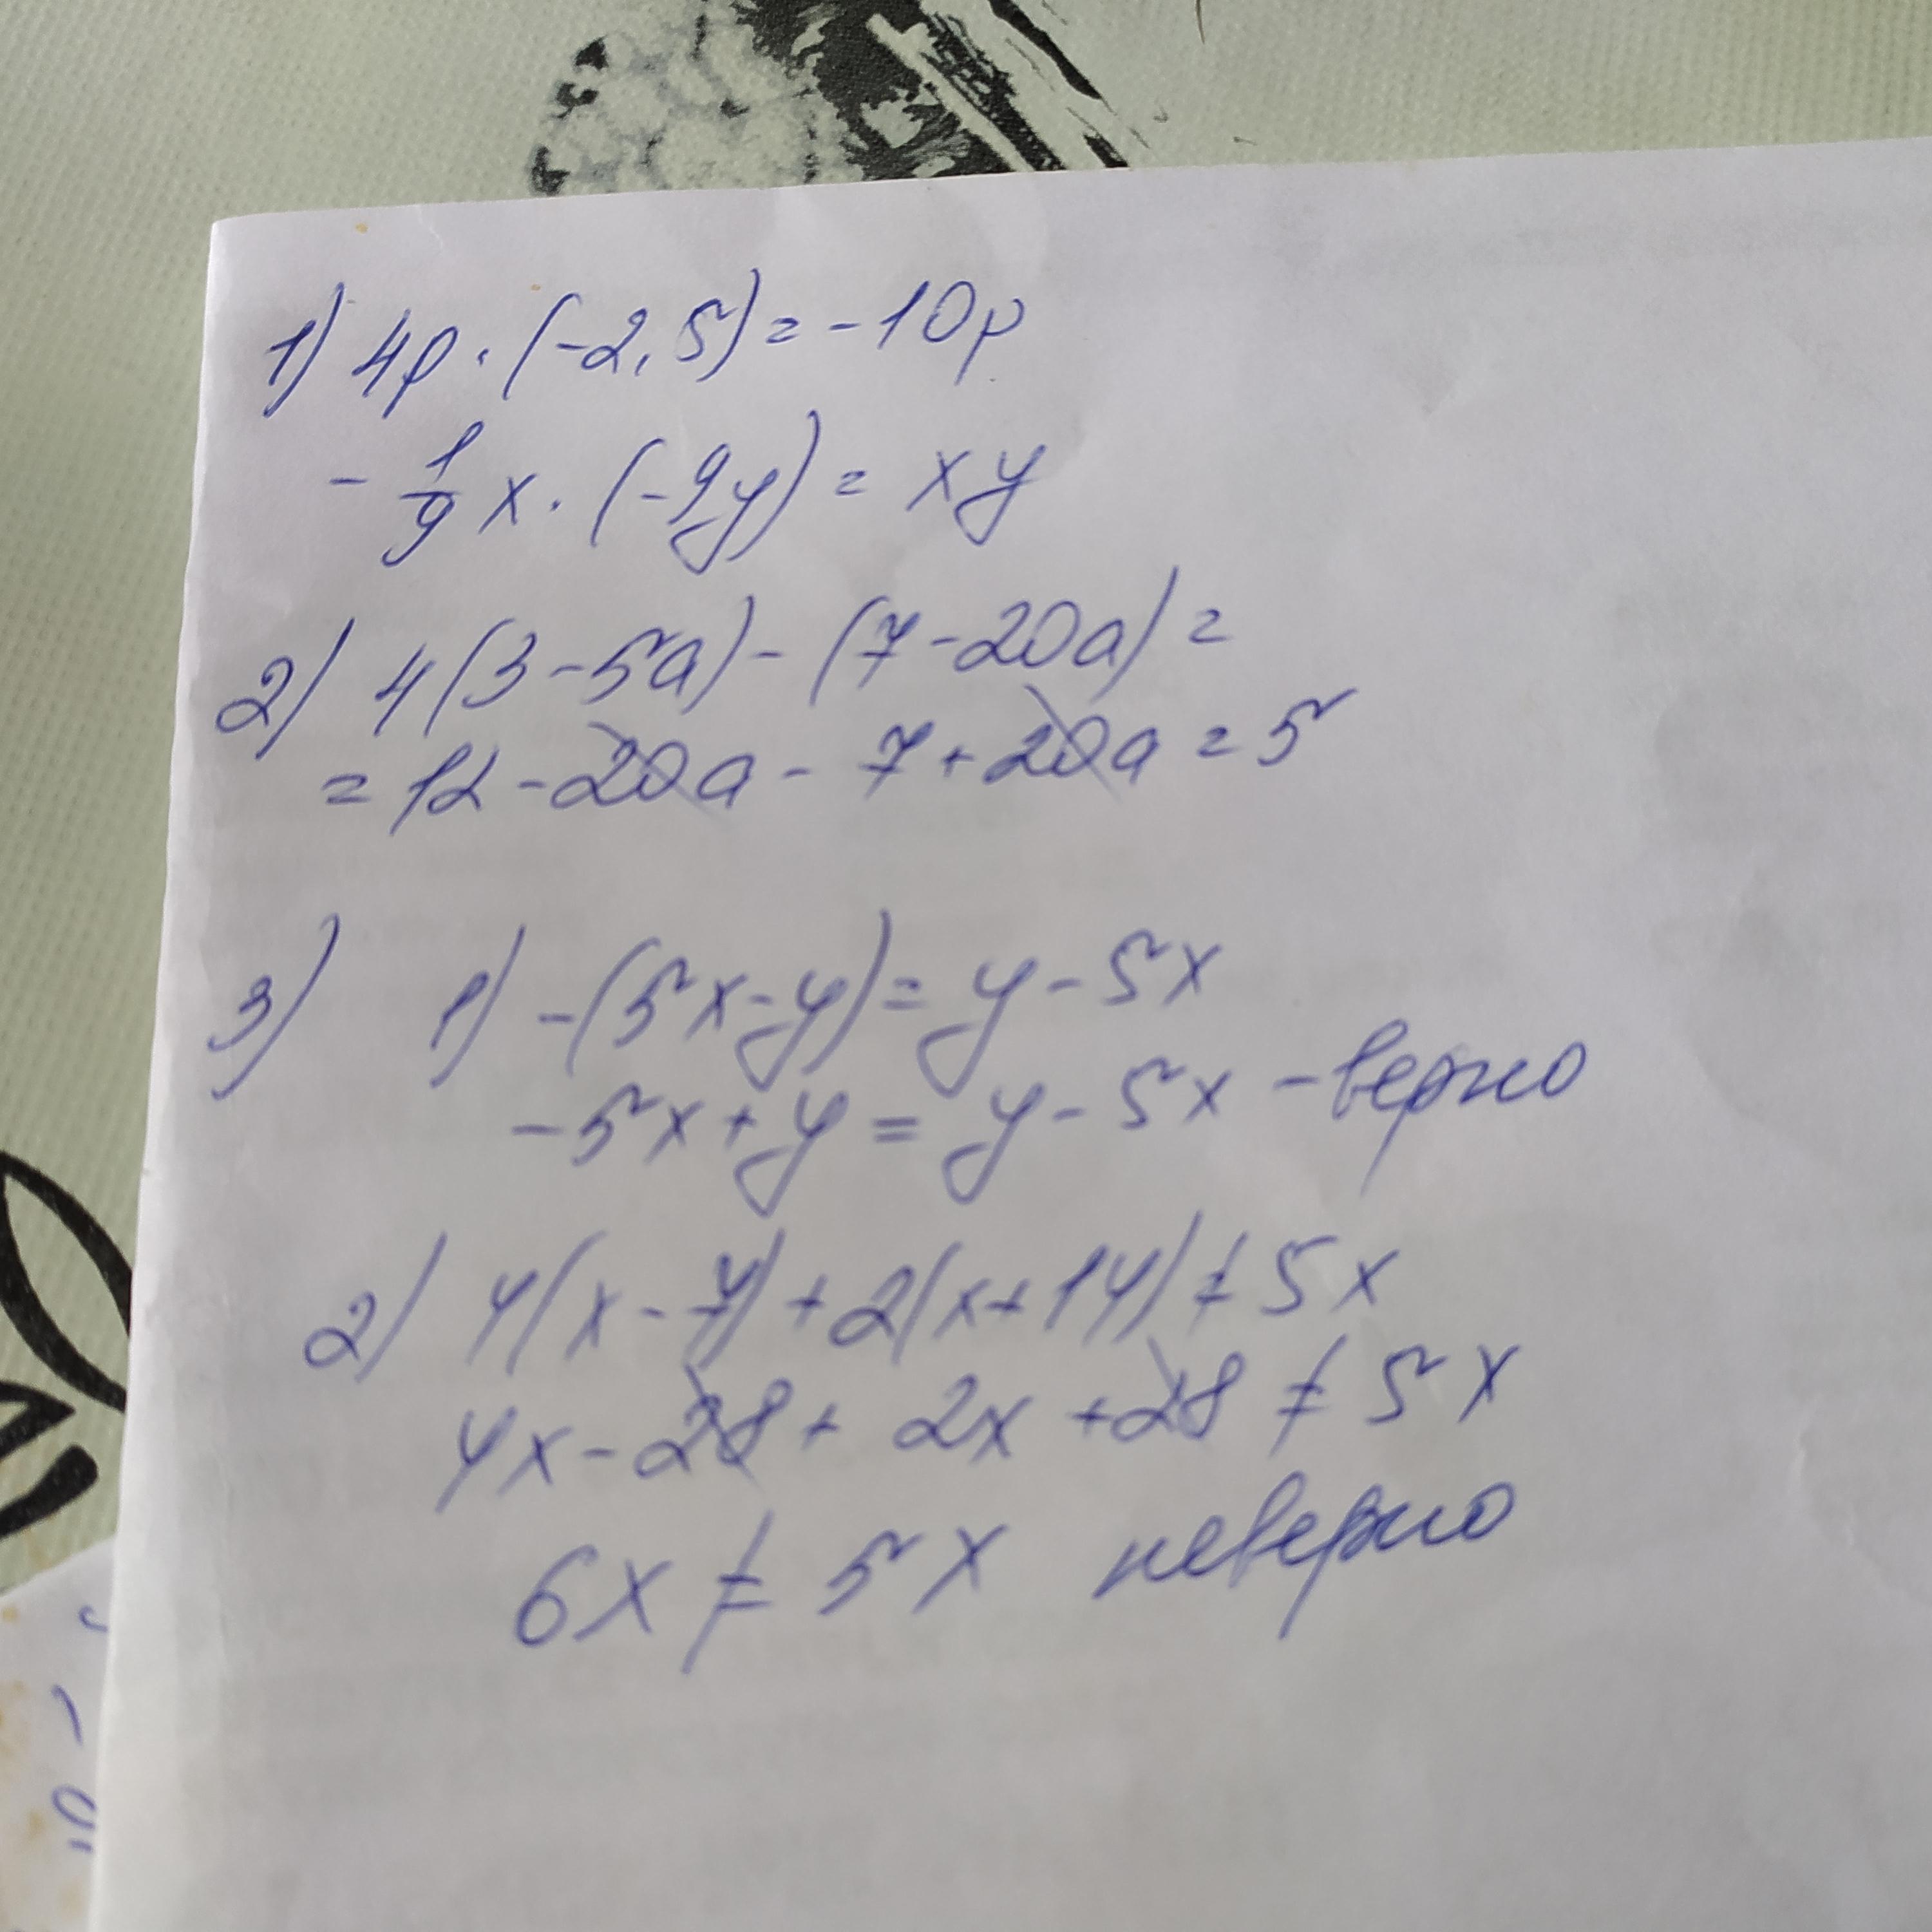 1) 4p · (-2,5) = -10p
- 1/9 x · (-9y) = xy
2) 4(3-5a) - (7-20a) =
= 12 - 20a - 7 + 20a = 5
3) 1) -(5x-y) = y - 5x
-5x + y = y - 5x - верно
2) 4(x-7) + 2(x+14) ≠ 5x
4x - 28 + 2x + 28 ≠ 5x
6x ≠ 5x неверно